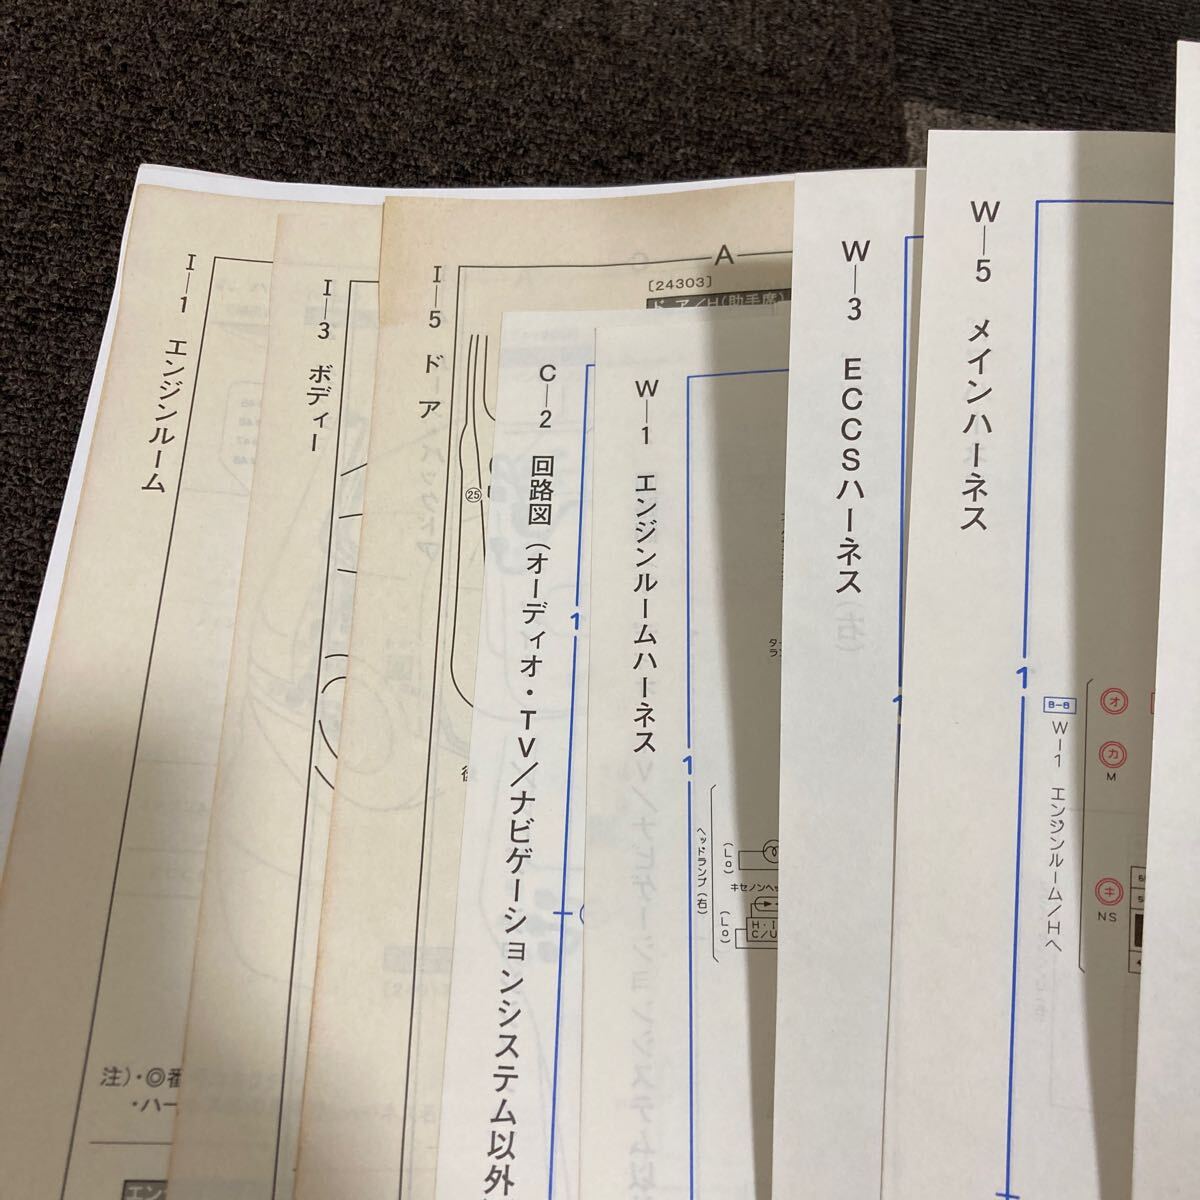 I—1 エンジンルーム
I—3 ボディー
I—5 ドア
A
〔24303〕
ドア/H(助手席)
25
C—2 回路図(オーディオ・TV/ナビゲーションシステム以外
1
W—1 エンジンルームハーネス
1
ヘッドランプ(右)
(Lo)
キセノンヘッ
(Lo)
H・I
C/U
W—3 ECCSハーネス
1
W—5 メインハーネス
1
B-B
W—1 エンジンルーム/Hへ
オ
カ
M
キ
NS
注)・◎番
・ハー
エン